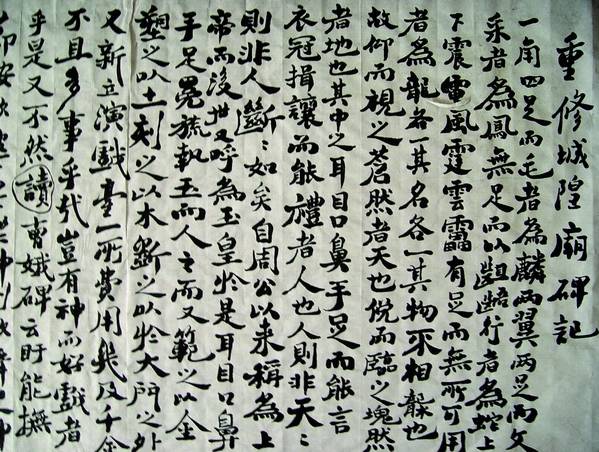 重修城隍廟碑記
一角四足而毛者為麟兩翼兩足而文
采者為鳳無足而以齟齬行者為蛇上
下震電風霆雲靁有足而無所可用
者為龍各一其名各一其物不相襲也
故仰而視之蒼然者天也俛而臨之塊然
者地也其中之耳目口鼻手足而能言
衣冠揖讓而能禮者人也人則非天〻
則非人斷〻如矣自周公以來稱為上
帝而後世又呼為玉皇於是耳目口鼻
手足冕旒執玉而人之而又範之以金
塑之以土刻之以木斲之以於大門之外
又新立演戲臺一所費用幾及千金
不且多事乎哉豈有神而好戲者
乎是又不然讀曹娥碑云盱能撫